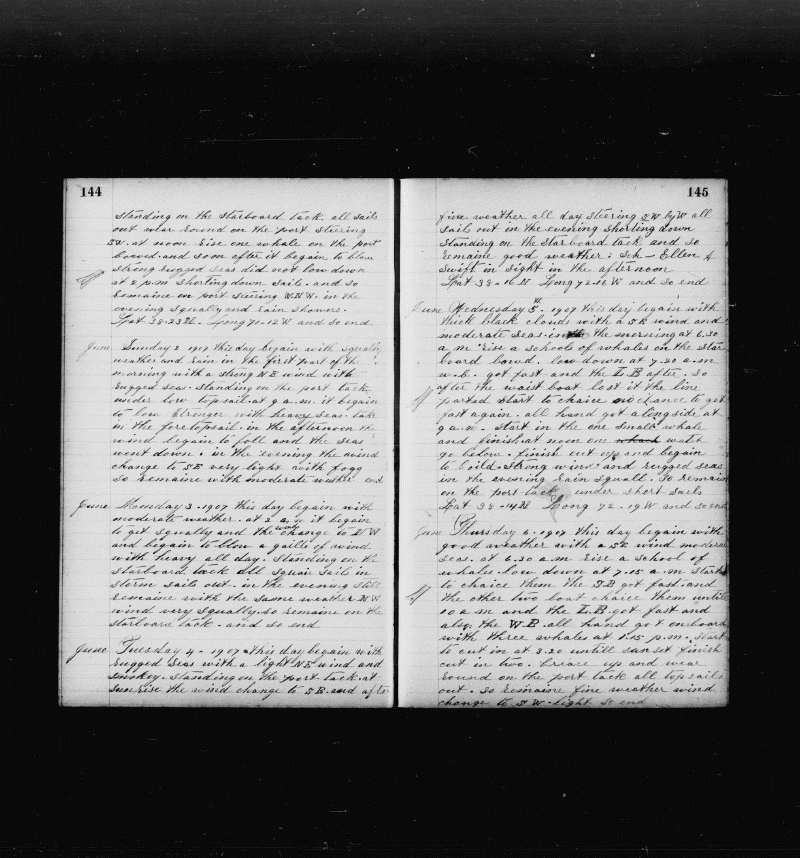 144
standing on the starboard tack. all sails
out war round on the port steering
SW. at noon rise one whale on the port
bowed. and soon after it began to blow
strong rugged seas did not low down
at 2 p.m shorting down sails. and so
remaine on port steering W.N.W. in the
evening squaly and rain showers.
Lat 38-23 N. Long 71-12 W and so end
June Sunday 2 1907 this day begain with squaly
weather and rain in the first part of the
morning with a strong NE wind with
rugged seas. standing on the port tack
under low topsail. at 9 a.m. it begain
to low stronger with heavy seas. tak
in the foretopsail. in the afternoon the
wind begain to fall and the seas
went down. in the evening the wind
change to SE very light with fogg
so remaine with moderate weather end
June Monday 3. 1907 this day begain with
moderate weather. at 2 a.m it begain
to get squaly and the wind change to NW
and begain to blow a gaille of wind
with heavy all day. standing on the
starboard tack all squair sails in
storm sails out. in the evening still
remaine with the same weather N.W
wind very squaly. so remaine on the
starboard tack. and so end
June Tuesday 4. 1907 this day begain with
rugged seas with a light NE wind and
smokey. standing on the port tack. at
sunrise the wind change to SE. and after
145
fine weather all day steering SW by W all
sails out in the evening shorting down
standing on the starboard tack and so
remaine good weather: Sch- Ellen A
Swift in sight in the afternoon
Lat 38-16 N Long 72-16 W and so end
June Wednesday 5th. 1907 this day begain with
thick black clouds with a SE wind and
moderate seas. in the morning at 6.30
a.m rise a schools of whales on the star
board bowd. low down at 7.20 a.m
w.b. got fast and the L B after. so
after the waist boat lost it the line
parted start to chaice no chance to get
fast again. all hand got alongside at
9 a.m. start in the one small whale
and finish at noon one watch
go below. finish cut up and begain
to boild. strong wind and rugged seas
in the evening rain squall. so remain
on the port tack under short sails
Lat 38-14 N Long 72.19 W and so end
June Thursday 6. 1907 this day begain with
good weather with a SE wind moderate
seas. at 6.30 a.m rise a school of
whales. low down at 7.15 a.m start
to chaice them the SB got fast. and
the other two boat chaice them untile
10 a m and the L.B. got fast and
also the W.B. all hand got onboard
with three whales at 1.15 p.m. start
to cut in at 3.20 untill sunset finish
cut in two. brace up and wear
round on the port tack all topsails
out. so remaine fine weather wind
change to SW. light so end